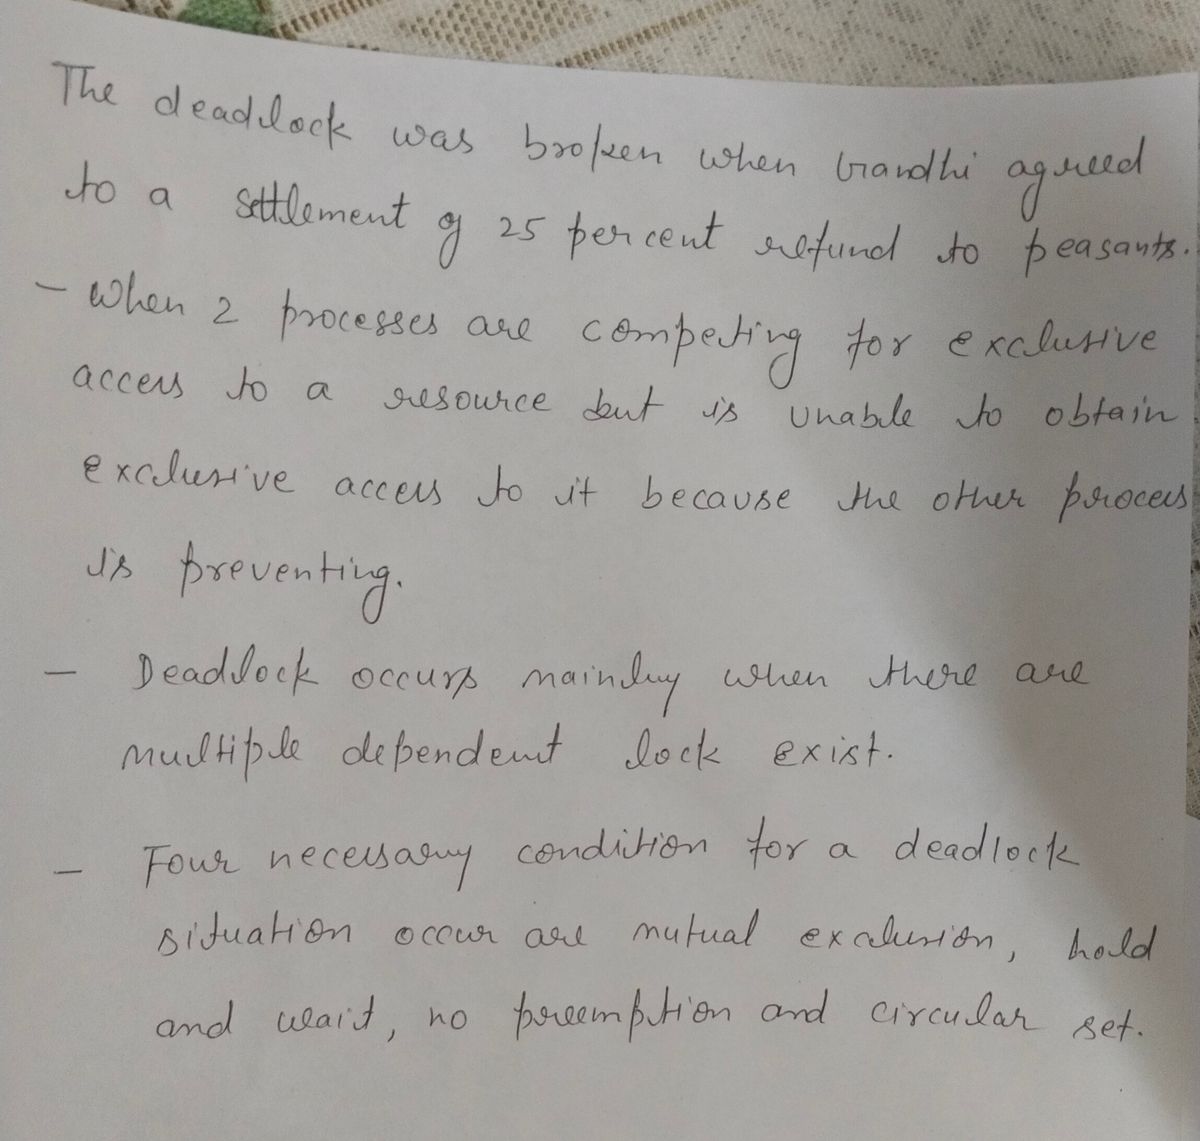 The deadlock was broken when Gandhi agreed
to a settlement of 25 percent refund to peasants.
- When 2 processes are competing for exclusive
access to a resource but is unable to obtain
exclusive access to it because the other process
is preventing.
- Deadlock occurs mainly when there are
multiple dependent lock exist.
- Four necessary condition for a deadlock
situation occur are mutual exclusion, hold
and wait, no preemption and circular set.